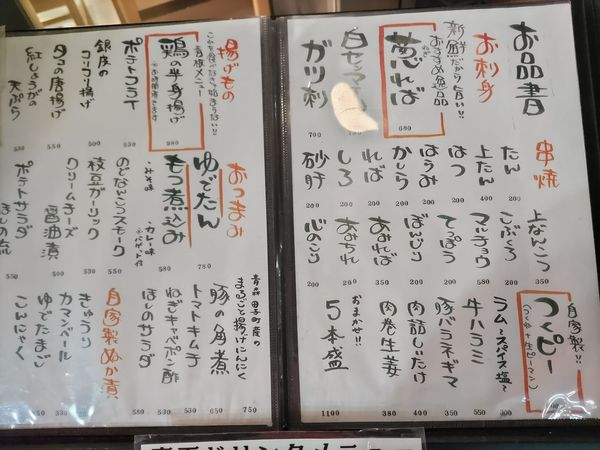 お品書
お刺身
新鮮だから旨い!!
おすすめ逸品
葱ればー
680
白センマイ刺
ガツ刺
700
串焼
たん
200
上たん
400
はつ
200
はらみ
かしら
200
ればー
200
しろ
200
砂肝
200
上なんこつ
350
こぶくろ
200
マルチョウ
てっぽう
200
ぼんじり
あみればー
あみちれ
200
心のこり
200
自家製!!
つくピー
(つくね+生ピーマン)
ラム〜スパイス塩〜
500
牛ハラミ
480
豚バラネギマ
肉詰しいたけ
400
肉巻生姜
380
おまかせ!!
5本盛
1100
揚げもの
これを食べなきゃ始まらない!!
看板メニュー
鶏の半身揚げ
※お時間頂きます
980
ポテトフライ
500
銀皮の
コリコリ揚げ
500
タコの唐揚げ
550
紅しょうがの
天ぷら
530
おつまみ
ゆでたん
780
もつ煮込み
・みそ味
・カレー味
※バゲット付
580
のどなんこつスモーク
枝豆ガーリック
500
クリームチーズ
醤油漬
500
ポテトサラダ
550
青森田子町産の
まるごと揚げにんにく
750
豚の角煮
650
トマトキムチ
ねぎキャベポン酢
ほしのサラダ
580
自家製ぬか漬
きゅうり
カマンベール
ゆでたまご
こんにゃく